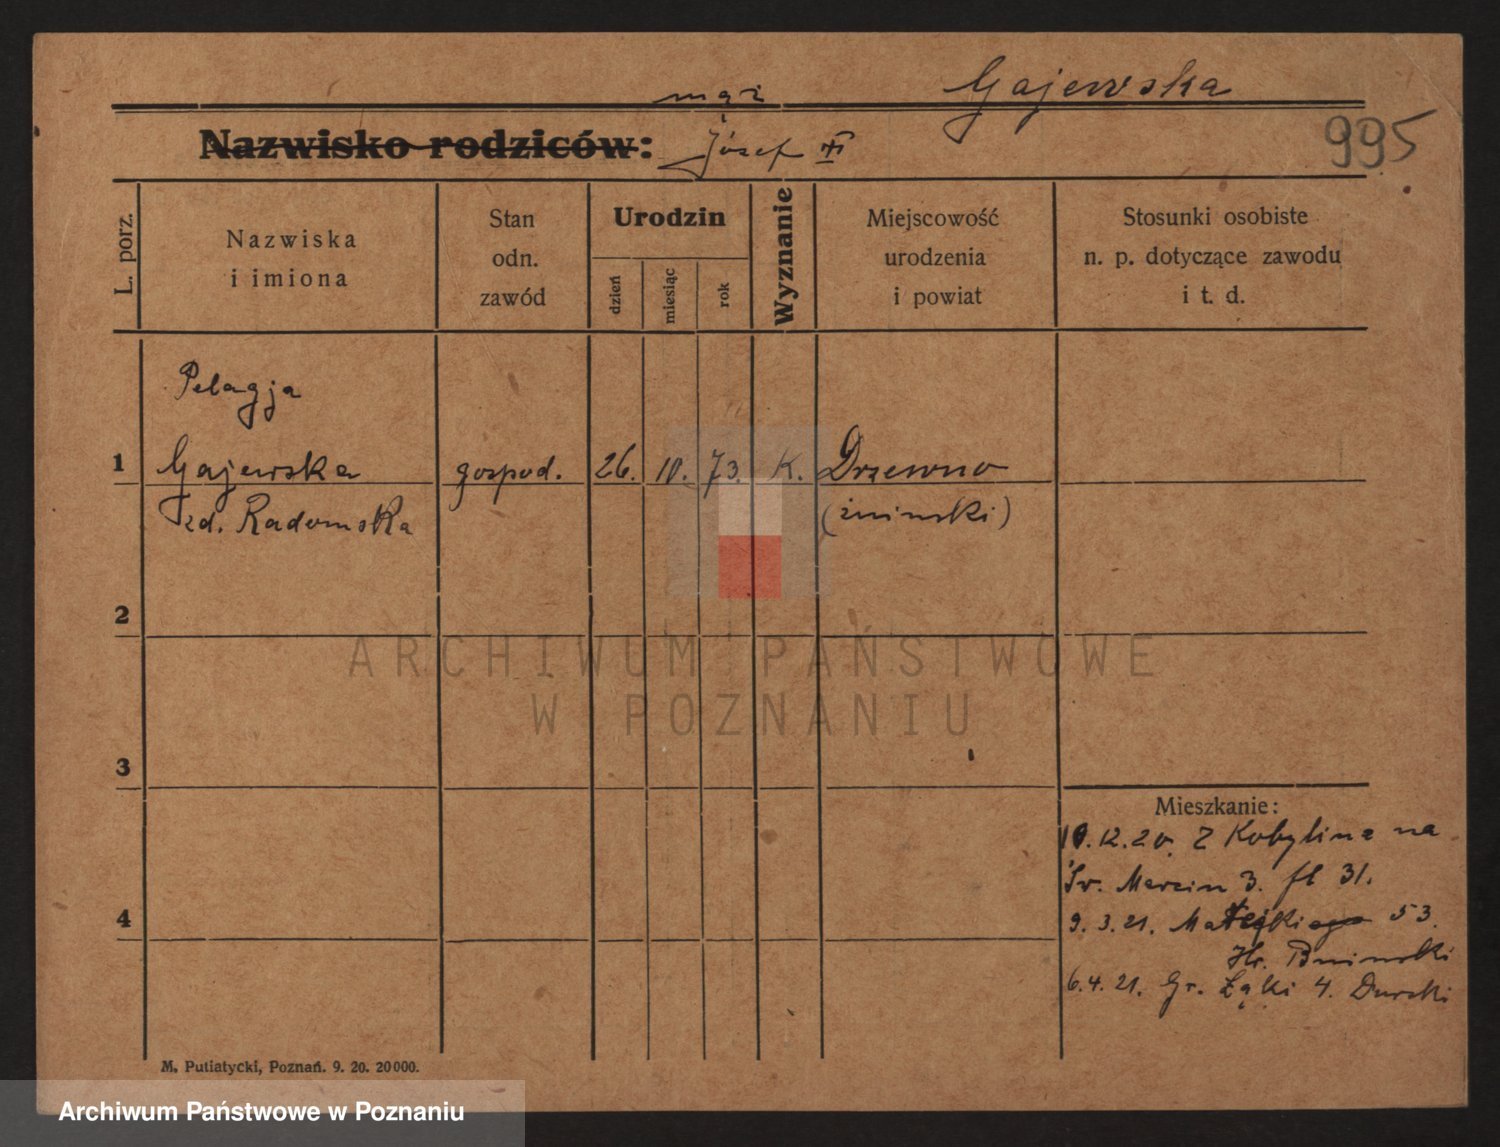 Gajewska
mąż
Nazwisko rodziców: Józef
995
L. porz.
Nazwiska
i imiona
Stan
odn.
zawód
Urodzin
dzień
miesiąc
rok
Wyznanie
Miejscowość
urodzenia
i powiat
Stosunki osobiste
n. p. dotyczące zawodu
i t. d.
Pelagja
1 Gajewska gospod. 26. 10. 73. K. Drzewno
zd. Radomska (żniński)
2
ARCHIWUM PAŃSTWOWE
W POZNANIU
3
Mieszkanie:
10.12.20. Z Kobylina na
Św. Marcin 3. fl 31.
4
9.3.21. Matejkiego 53.
Hr. Bniński
6.4.21. Gr. Łąki 4. Durski
M. Putiatycki, Poznań. 9. 20. 20000.
Archiwum Państwowe w Poznaniu